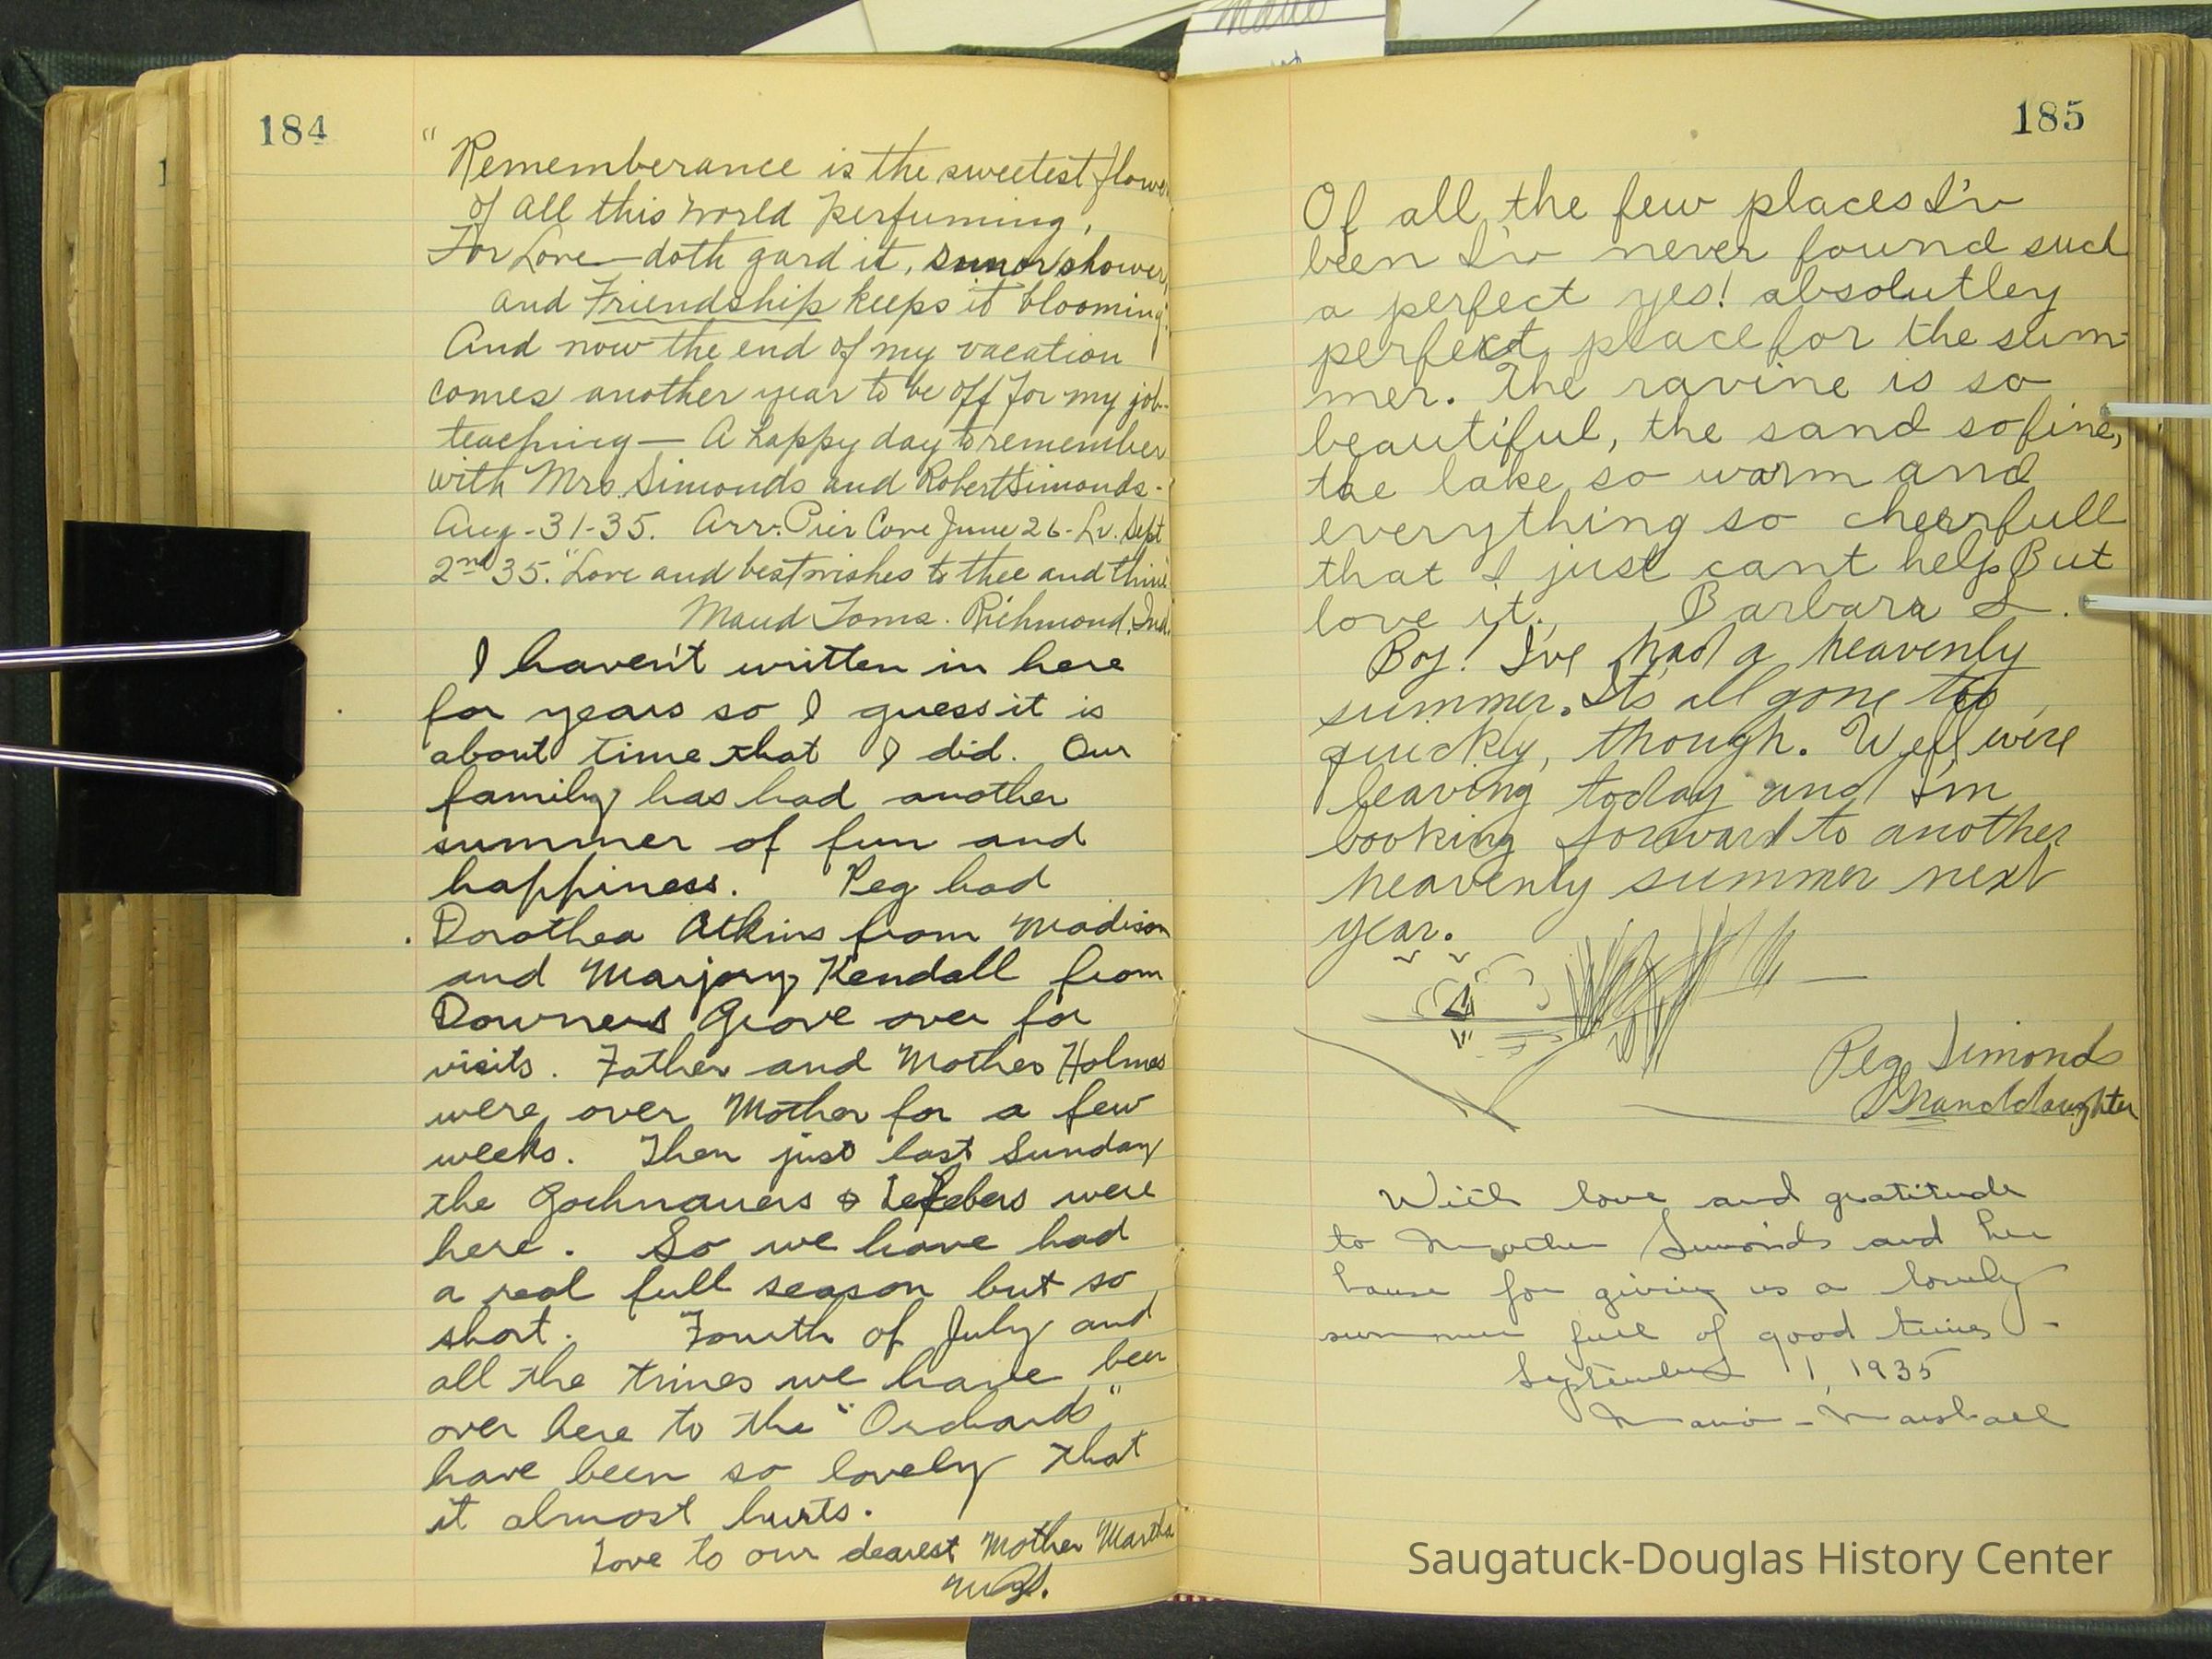 184
"Rememberance is the sweetest flower
of all this world perfuming,
For Love—doth gard it, sun or shower,
and Friendship keeps it blooming".
And now the end of my vacation
comes another year to be off for my job-
teaching — A happy day to remember
with Mrs. Simonds and Robert Simonds-
Aug-31-35. Arr. Pier Cove June 26- Lv. Sept
2nd 35. "Love and best wishes to thee and thine"
Maud Toms. Richmond, Ind.
I haven't written in here
for years so I guess it is
about time that I did. Our
family has had another
summer of fun and
happiness. Peg had
Dorothea Atkins from Madison
and Marjory Kendall from
Downers Grove over for
visits. Father and Mother Holmes
were over Mother for a few
weeks. Then just last Sunday
the Gochnauers & Lefebers were
here. So we have had
a real full season but so
short. Fourth of July and
all the times we have been
over here to the "Orchards"
have been so lovely that
it almost hurts.
Love to our dearest Mother Martha
185
Of all the few places I'v
been I'v never found such
a perfect yes! absolutley
perfect place for the sum-
mer. The ravine is so
beautiful, the sand so fine,
the lake so warm and
everything so cheerfull
that I just can't help But
love it. Barbara S.
Boy! I've had a heavenly
summer. It's all gone too
quickly, though. Well we're
leaving today and I'm
looking forward to another
heavenly summer next
year.
Peg Simonds
Granddaughter
With love and gratitude
to Mother Simonds and her
house for giving us a lovely
summer full of good times -
September 1, 1935
Marshall
Saugatuck-Douglas History Center